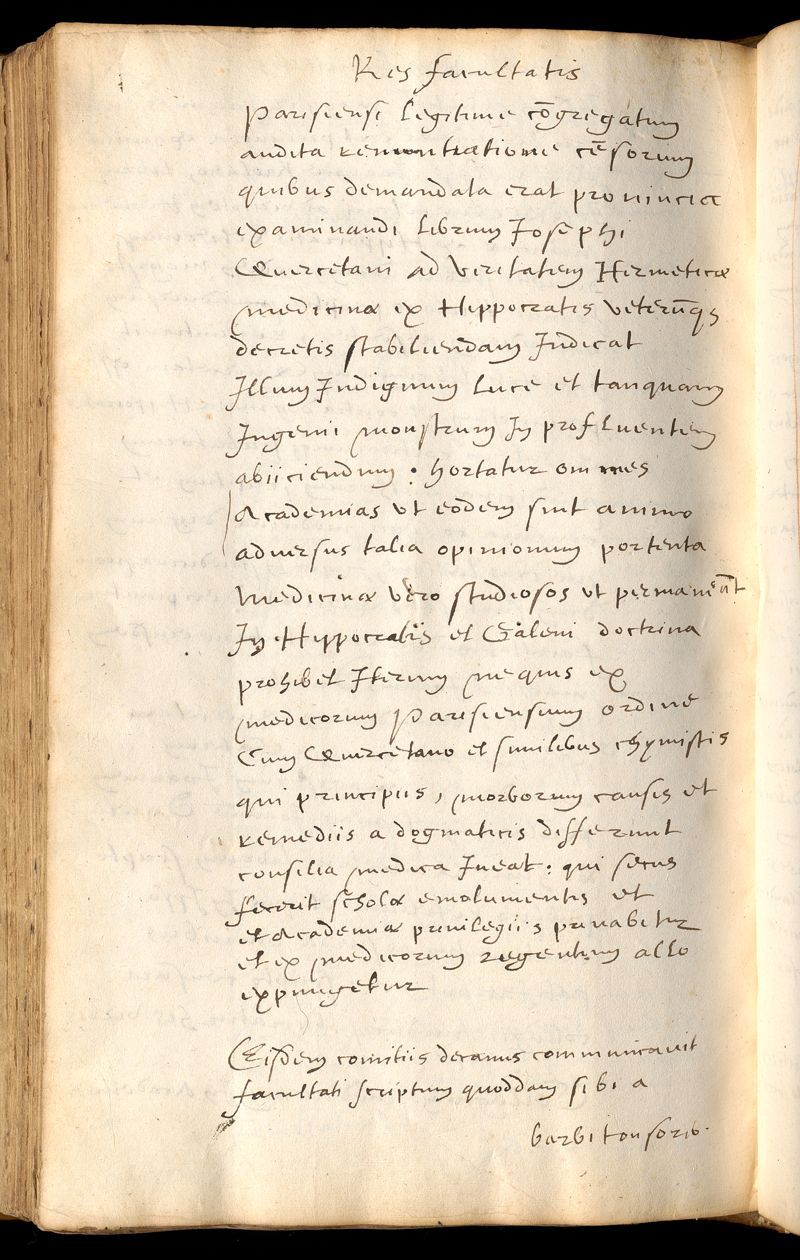 Res facultatis
Parisiensi legitime cōgregatum
audita remontratione cēsorum
quibus demandata erat prouincia
examinandi librum Josephi
Quercetani ad veritatem Hermeticæ
medicinæ ex Hippocratis veterūqȝ
decretis stabiliendam Judicat
Illum Indignum luce et tanquam
Ingenii monstrum In profluentem
abiiciendum : hortatur omnes
Academias vt eodem sint animo
aduersus talia opinionum portenta
medicinæ vero studiosos vt permaneāt
In Hippocratis et Galeni doctrina
prohibet Iterum ne quis ex
medicorum Parisiensium ordine
Cum Quercetano et similibus chymistis
qui principiis, morborum causis et
remediis a dogmaticis differunt
consilia medica Ineat : qui secus
fecerit scholæ emolumentis et
et Academiæ priuilegiis priuabitur
et ex medicorum regentium albo
expungetur
Eisdem comitiis decanus communicauit
facultati scriptum quoddam sibi a
barbitonsorib.